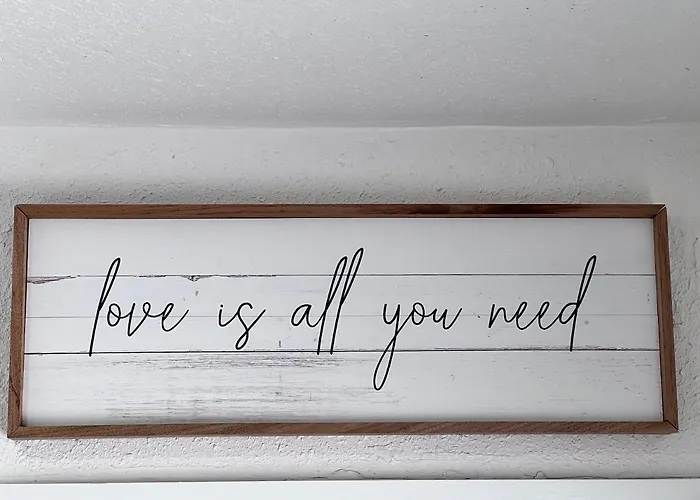 love is all you need